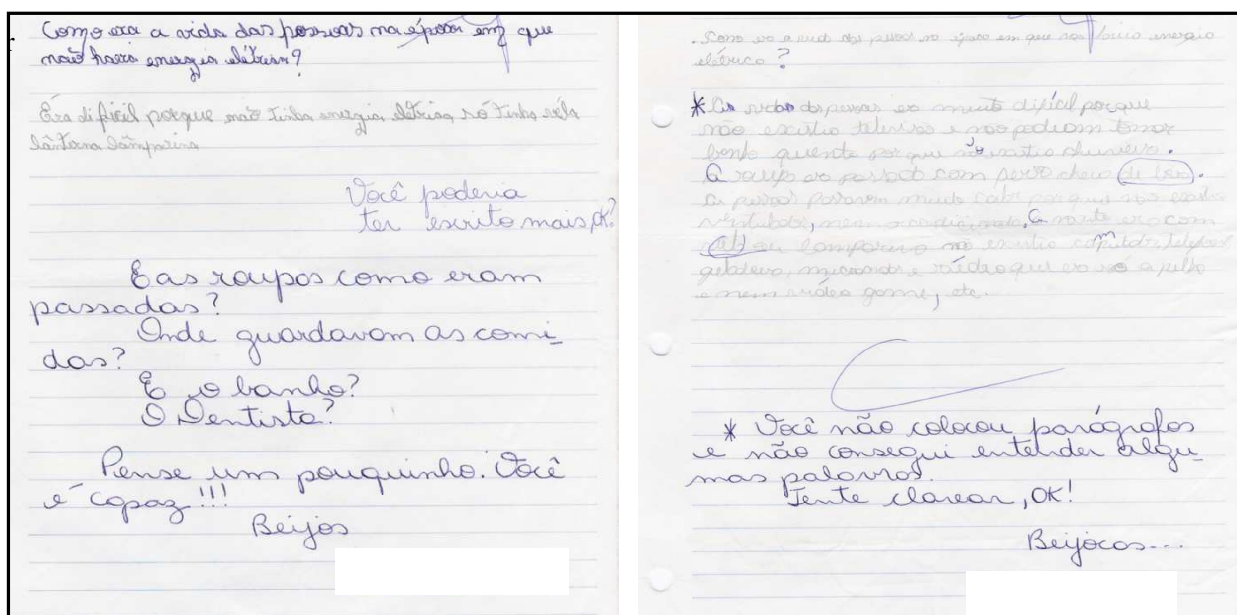 Como era a vida das pessoas na época em que
não havia energia elétrica?
Era dificil porque não tinha energia elétrica só tinha vela
lânterna lâmparina
Você poderia
ter escrito mais, ok?
E as roupas como eram
passadas?
Onde guardavam as comi_
das?
E o banho?
O Dentista?
Pense um pouquinho. Você
é capaz!!!
Beijos
. Como era a vida das pessoas na época em que não havia energia
elétrica?
* As vidas das pessoas era muito difícil porque
não existia televisão e não podiam tomar
banho quente porque não existia chuveiro.
A roupa era passada com ferro cheio de
As pessoas passavam muito calor porque não
ventilador, nem A noite era com
ou lamparina não existia computador,
geladeira, e rádio que era só a pilha
e nem vídeo game, etc.
* Você não colocou parágrafos
e não consegui entender algu_
mas palavras.
Tente clarear, OK!
Beijocas...